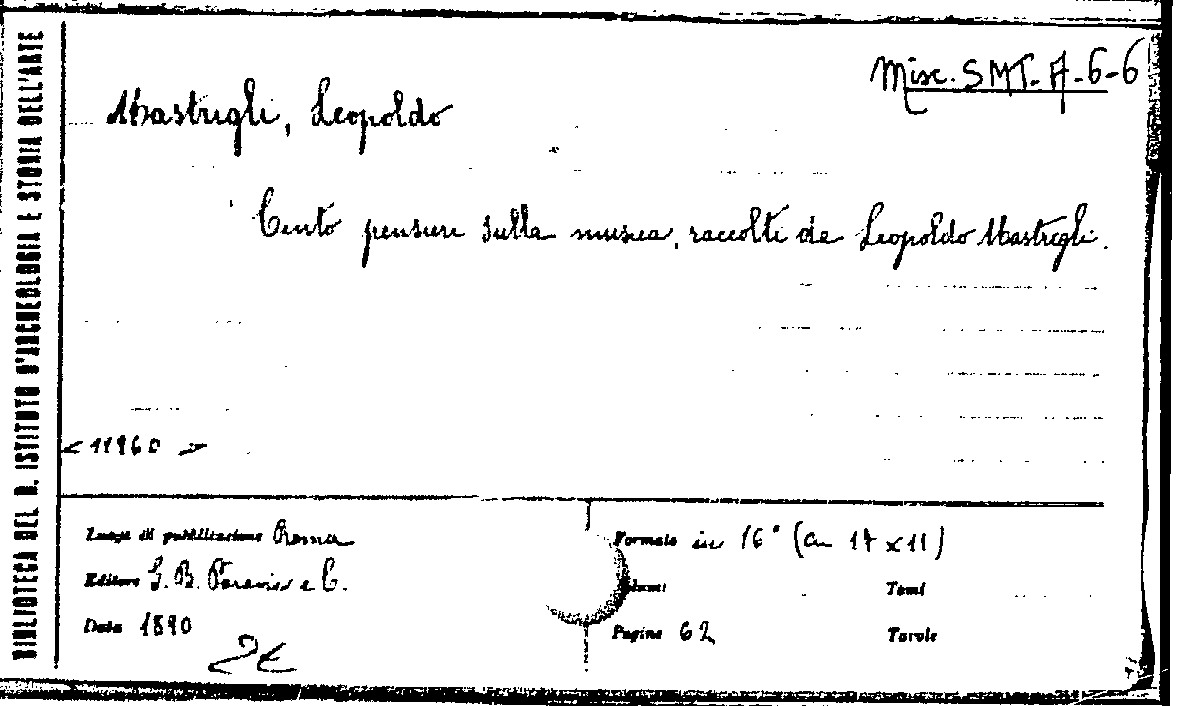 BIBLIOTECA DEL R. ISTITUTO D'ARCHEOLOGIA E STORIA DELL'ARTE
Misc. SMT-A-6-6
Mastrigli, Leopoldo
Cento pensieri sulla musica, raccolti da Leopoldo Mastrigli.
<11960>
Luogo di pubblicazione Roma
Editore G. B. Paravia e C.
Data 1890
Formato in 16° (cm 17 x 11)
Volumi
Tomi
Pagine 62
Tavole